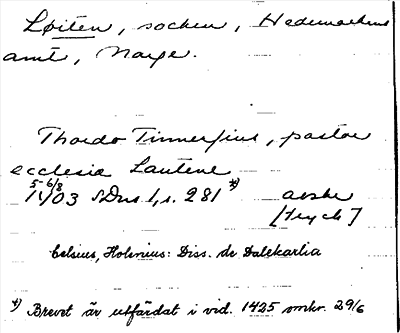 Løiten, socken, Hedemarkens
amt, Norge.
Thordo Tinnersius, pastor
ecclesia Lautene
5-6/8
1403 SDns 1, s. 281 *) avskr
[tryck]
Celsius, Holenius: Diss. de Dalekarlia
*) Brevet är utfärdat i vid. 1425 omkr. 29/6